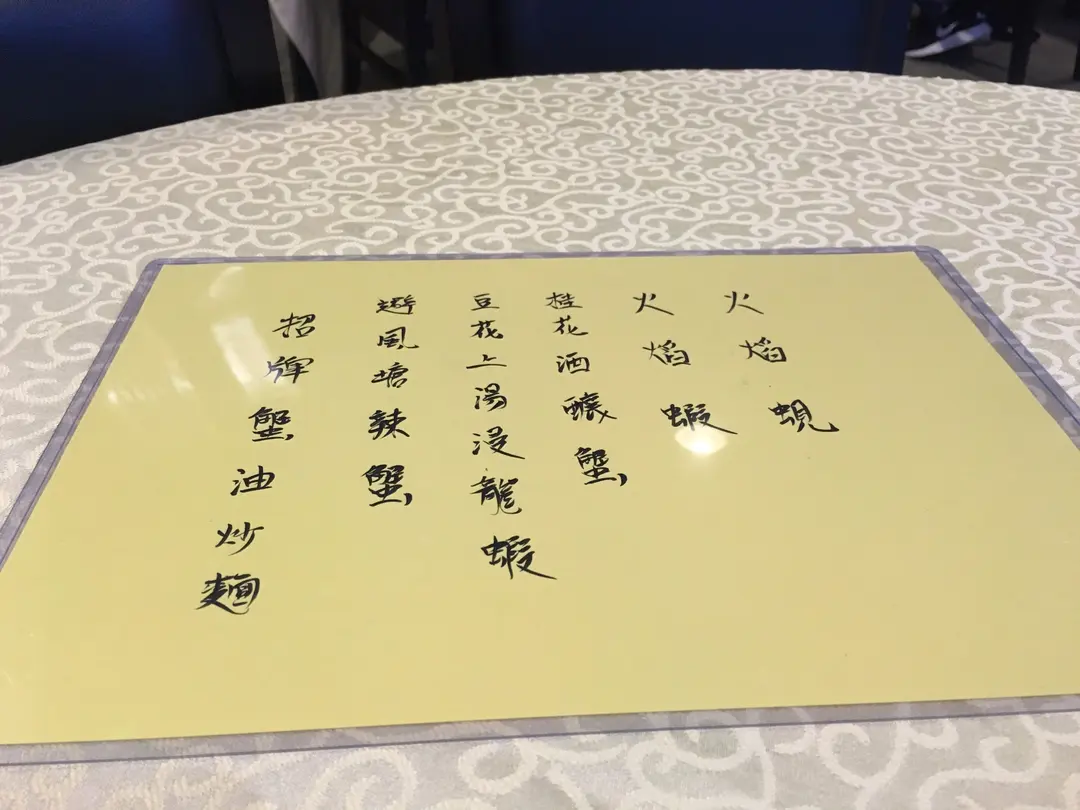 火焰蜆
火焰蝦
桂花酒釀蟹
豆花上湯浸龍蝦
避風塘辣蟹
招牌蟹油炒麵